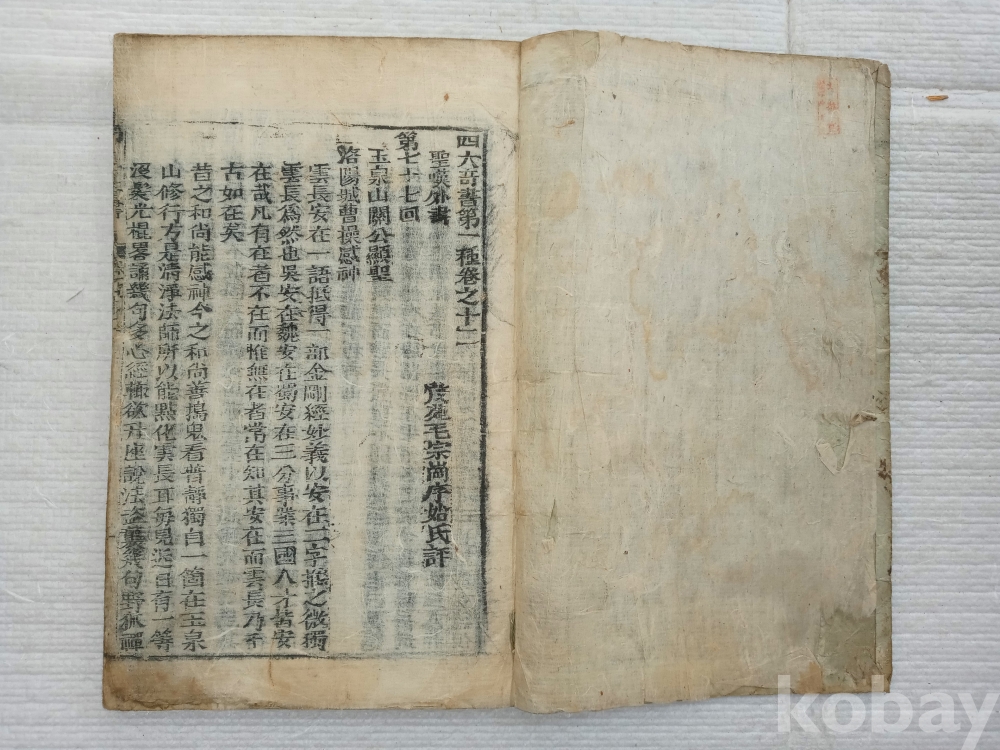 四大奇書第一種卷之十二
聖嘆外書
茂苑毛宗崗序始氏評
第七十七回
玉泉山關公顯聖
洛陽城曹操感神
雲長安在一語抵得一部金剛經妙義以安在二字推之微獨
雲長為然也吳安在魏安在蜀安在三分事業三國人才皆安
在哉凡有在者不在而惟無在者常在知其安在而雲長乃千
古如在矣
昔之和尚能感神今之和尚善搗鬼看普靜獨自一箇在玉泉
山修行方是清淨法師所以能點化雲長耳每見近日有一等
沒髮光棍畧誦幾句多心經輒欲升座說法盜襲幾句野狐禪
kobay